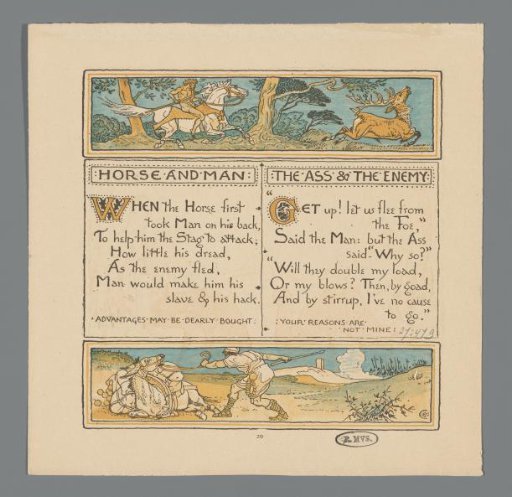 HORSE·AND·MAN
WHEN the Horse first
took Man on his back,
To help him the Stag to attack;
How little his dread,
As the enemy fled,
Man would make him his
slave & his hack.
·ADVANTAGES·MAY·BE·DEARLY·BOUGHT:
:THE·ASS·&·THE·ENEMY·
"GET up! let us flee from
the Foe,"
Said the Man: but the Ass
said, "Why so?"
"Will they double my load,
Or my blows? Then, by goad,
And by stirrup, I've no cause
to go."
:YOUR·REASONS·ARE·
NOT·MINE:
R.MVS.